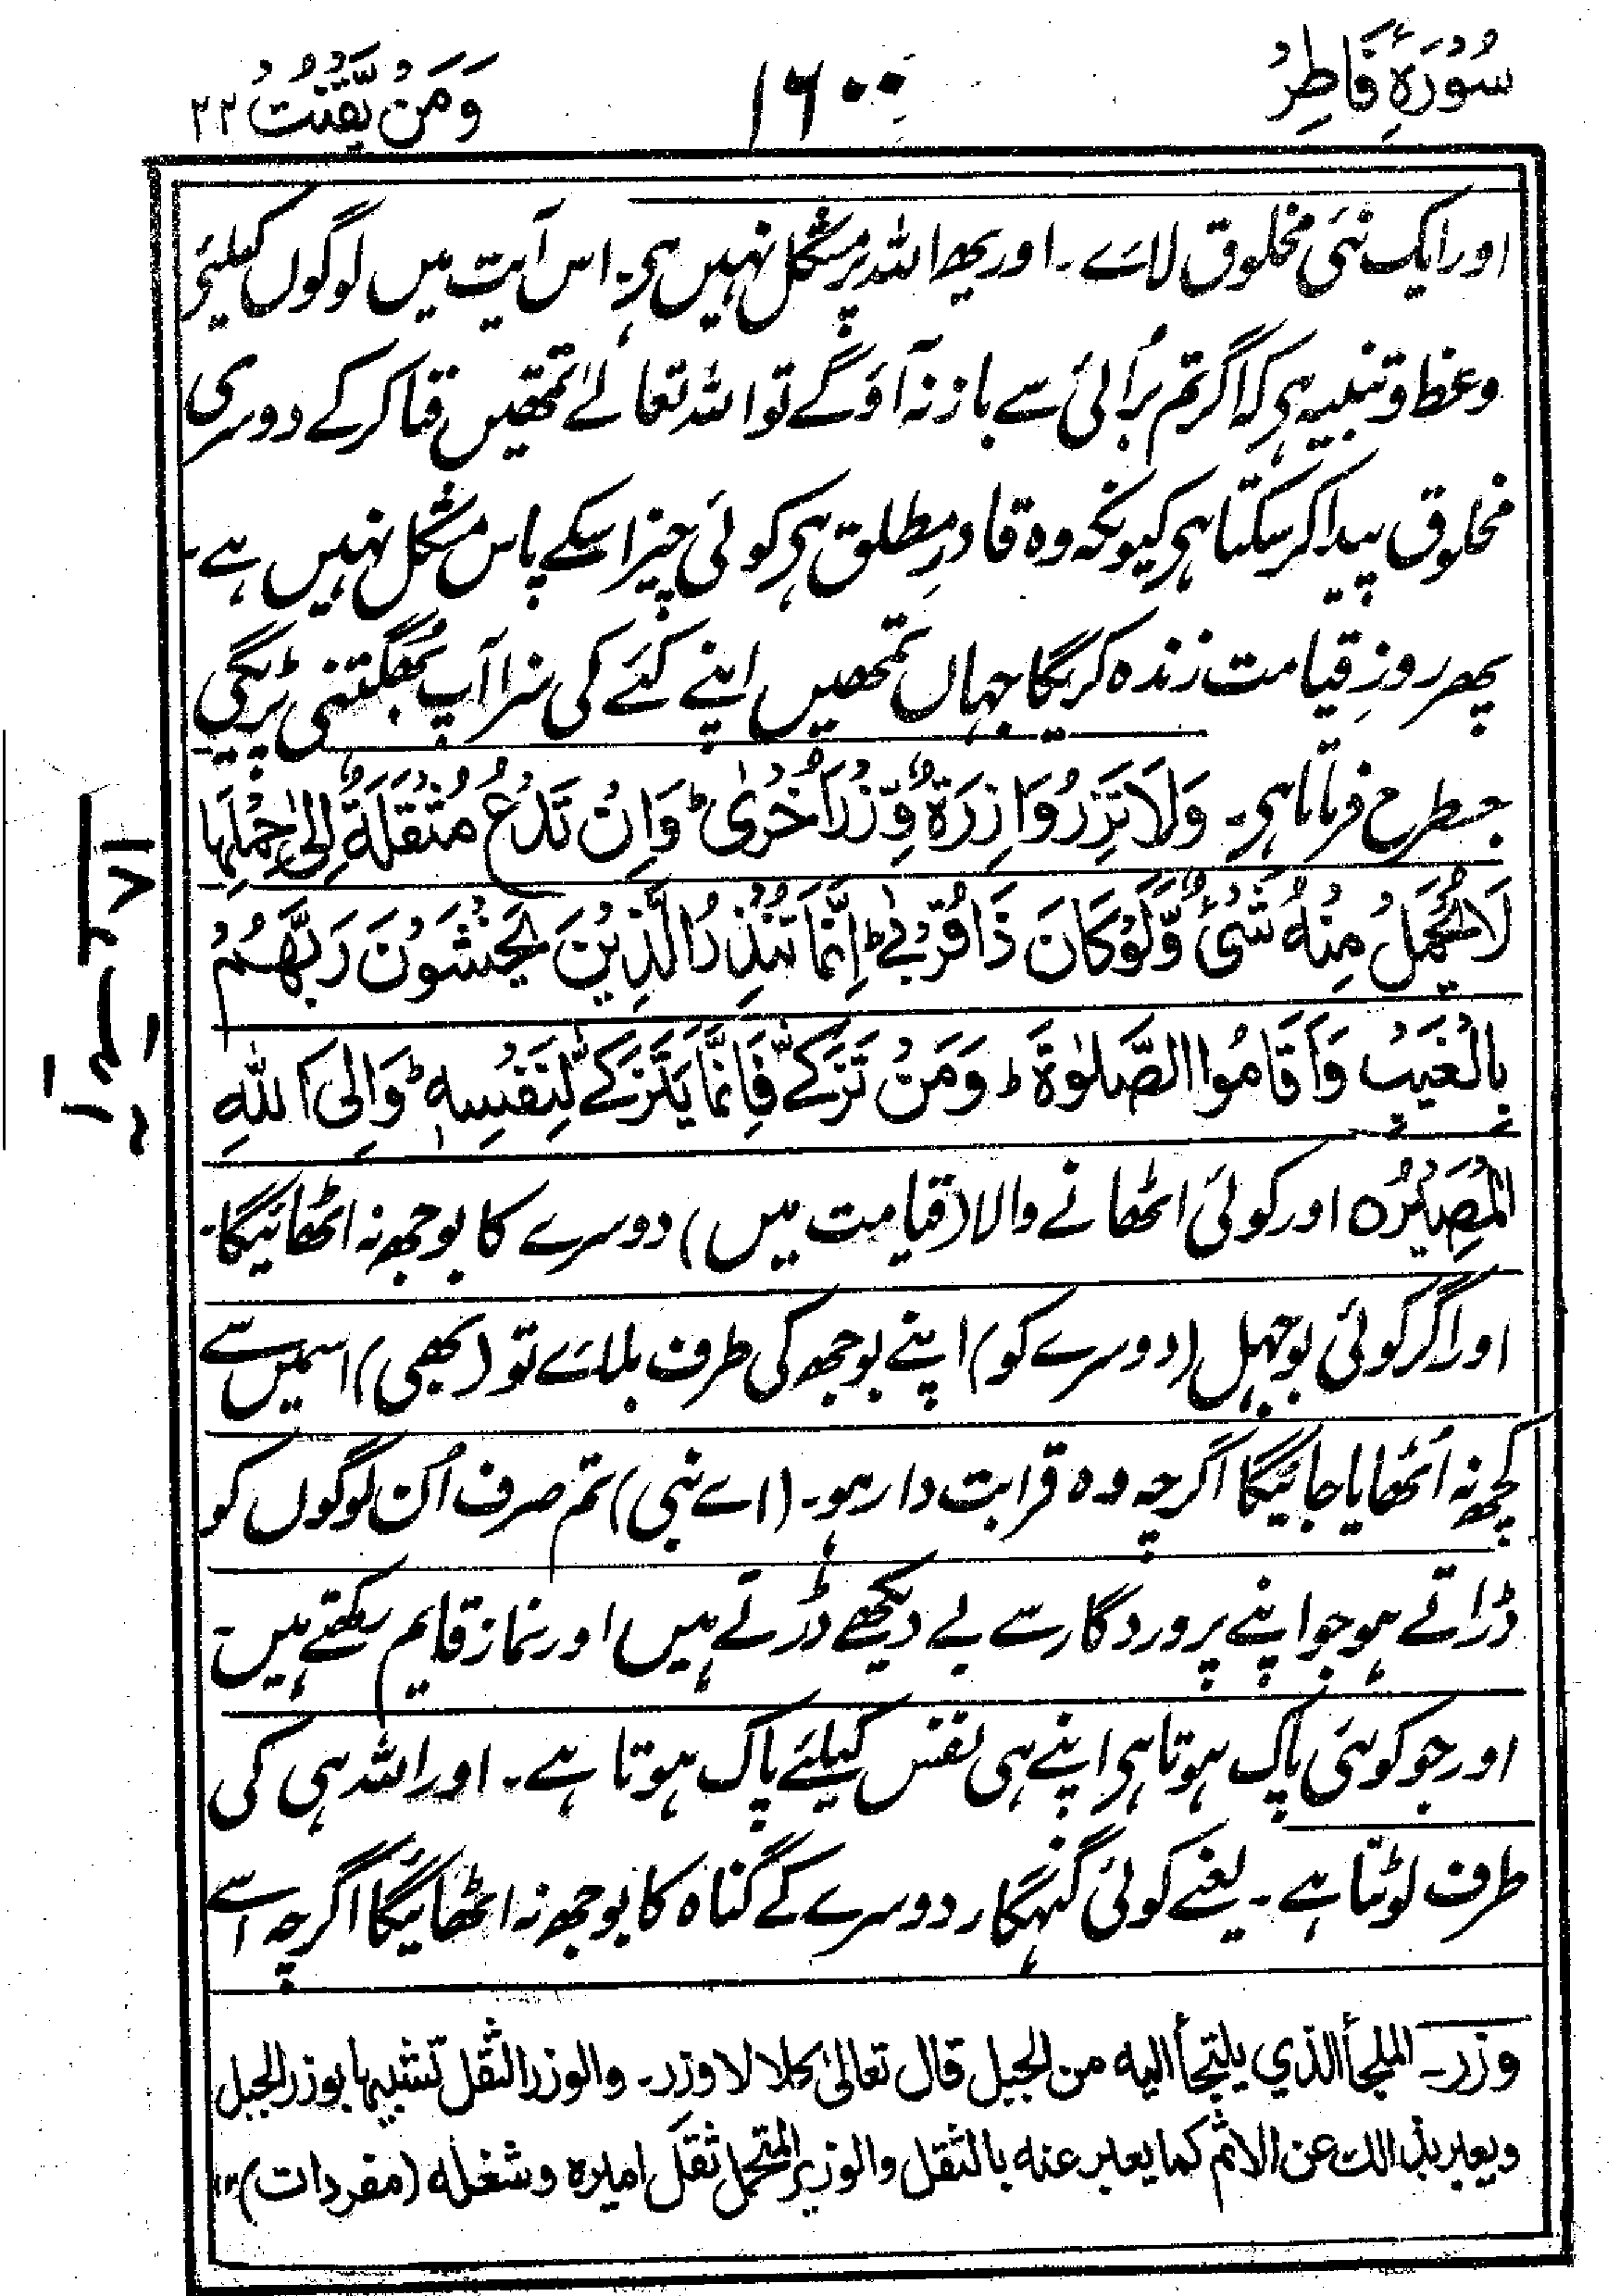 سُوْرَةُ فَاطِرْ
١٦٠٠
وَمَنْ يَّقْنُتْ ٢٢
اور ایک نئی مخلوق لاے۔ اور یھ اللہ پر مشکل نہیں ہی۔ اس آیت میں لوگوں کیلئی
وعظ و تنبیہ ہی کہ اگر تم بُرائی سے باز نہ آؤگے تو اللہ تعالےٰ تمھیں فنا کرکے دوسری
مخلوق پیدا کر سکتا ہی کیونکہ وہ قادرِ مطلق ہی کوئی چیز اسکے پاس مشکل نہیں ہے۔
پھر روزِ قیامت زندہ کریگا جہاں تمھیں اپنے کئے کی سزا آپ بُھگتنی پڑیگی
جسطرح فرماتا ہی۔ وَلَا تَزِرُ وَازِرَةٌ وِّزْرَ اُخْرٰیؕ وَاِنْ تَدْعُ مُثْقَلَةٌ اِلیٰ حِمْلِهَا
لَا يُحْمَلُ مِنْهُ شَیْءٌ وَّلَوْ كَانَ ذَا قُرْبیٰؕ اِنَّمَا تُنْذِرُ الَّذِيْنَ يَخْشَوْنَ رَبَّهُمْ
بِالْغَيْبِ وَاَقَامُوا الصَّلٰوةَؕ وَمَنْ تَزَكّٰے فَاِنَّمَا يَتَزَكّٰے لِنَفْسِهٖؕ وَاِلَی اللهِ
الْمَصِيْرُه اور کوئی اٹھانے والا (قیامت میں) دوسرے کا بوجھ نہ اٹھائیگا۔
اور اگر کوئی بوجہل (دوسرے کو) اپنے بوجھ کی طرف بلاے تو (بھی) اسمیں سے
کچھ نہ اُٹھایا جائیگا اگرچہ وہ قرابت دار ہو۔ (اے نبی) تم صرف اُن لوگوں کو
ڈراتے ہو جو اپنے پروردگار سے بے دیکھے ڈرتے ہیں اور نماز قایم رکھتے ہیں۔
اور جو کوئی پاک ہوتا ہی اپنے ہی نفس کیلئے پاک ہوتا ہے۔ اور اللہ ہی کی
طرف لوٹنا ہے۔ یعنے کوئی گنہگار دوسرے کے گناہ کا بوجھ نہ اٹھائیگا اگرچہ اسے
وزر۔ الملجأ الذي يلتجأ اليه من الجبل قال تعالیٰ کلا لا وزر۔ والوزر الثقل تشبیہا بوزر الجبل
ويعبر بذالك عن الاثم كما يعبر عنه بالثقل والوزير المتحمل ثقل اميره وشغله (مفردات) ۱۲